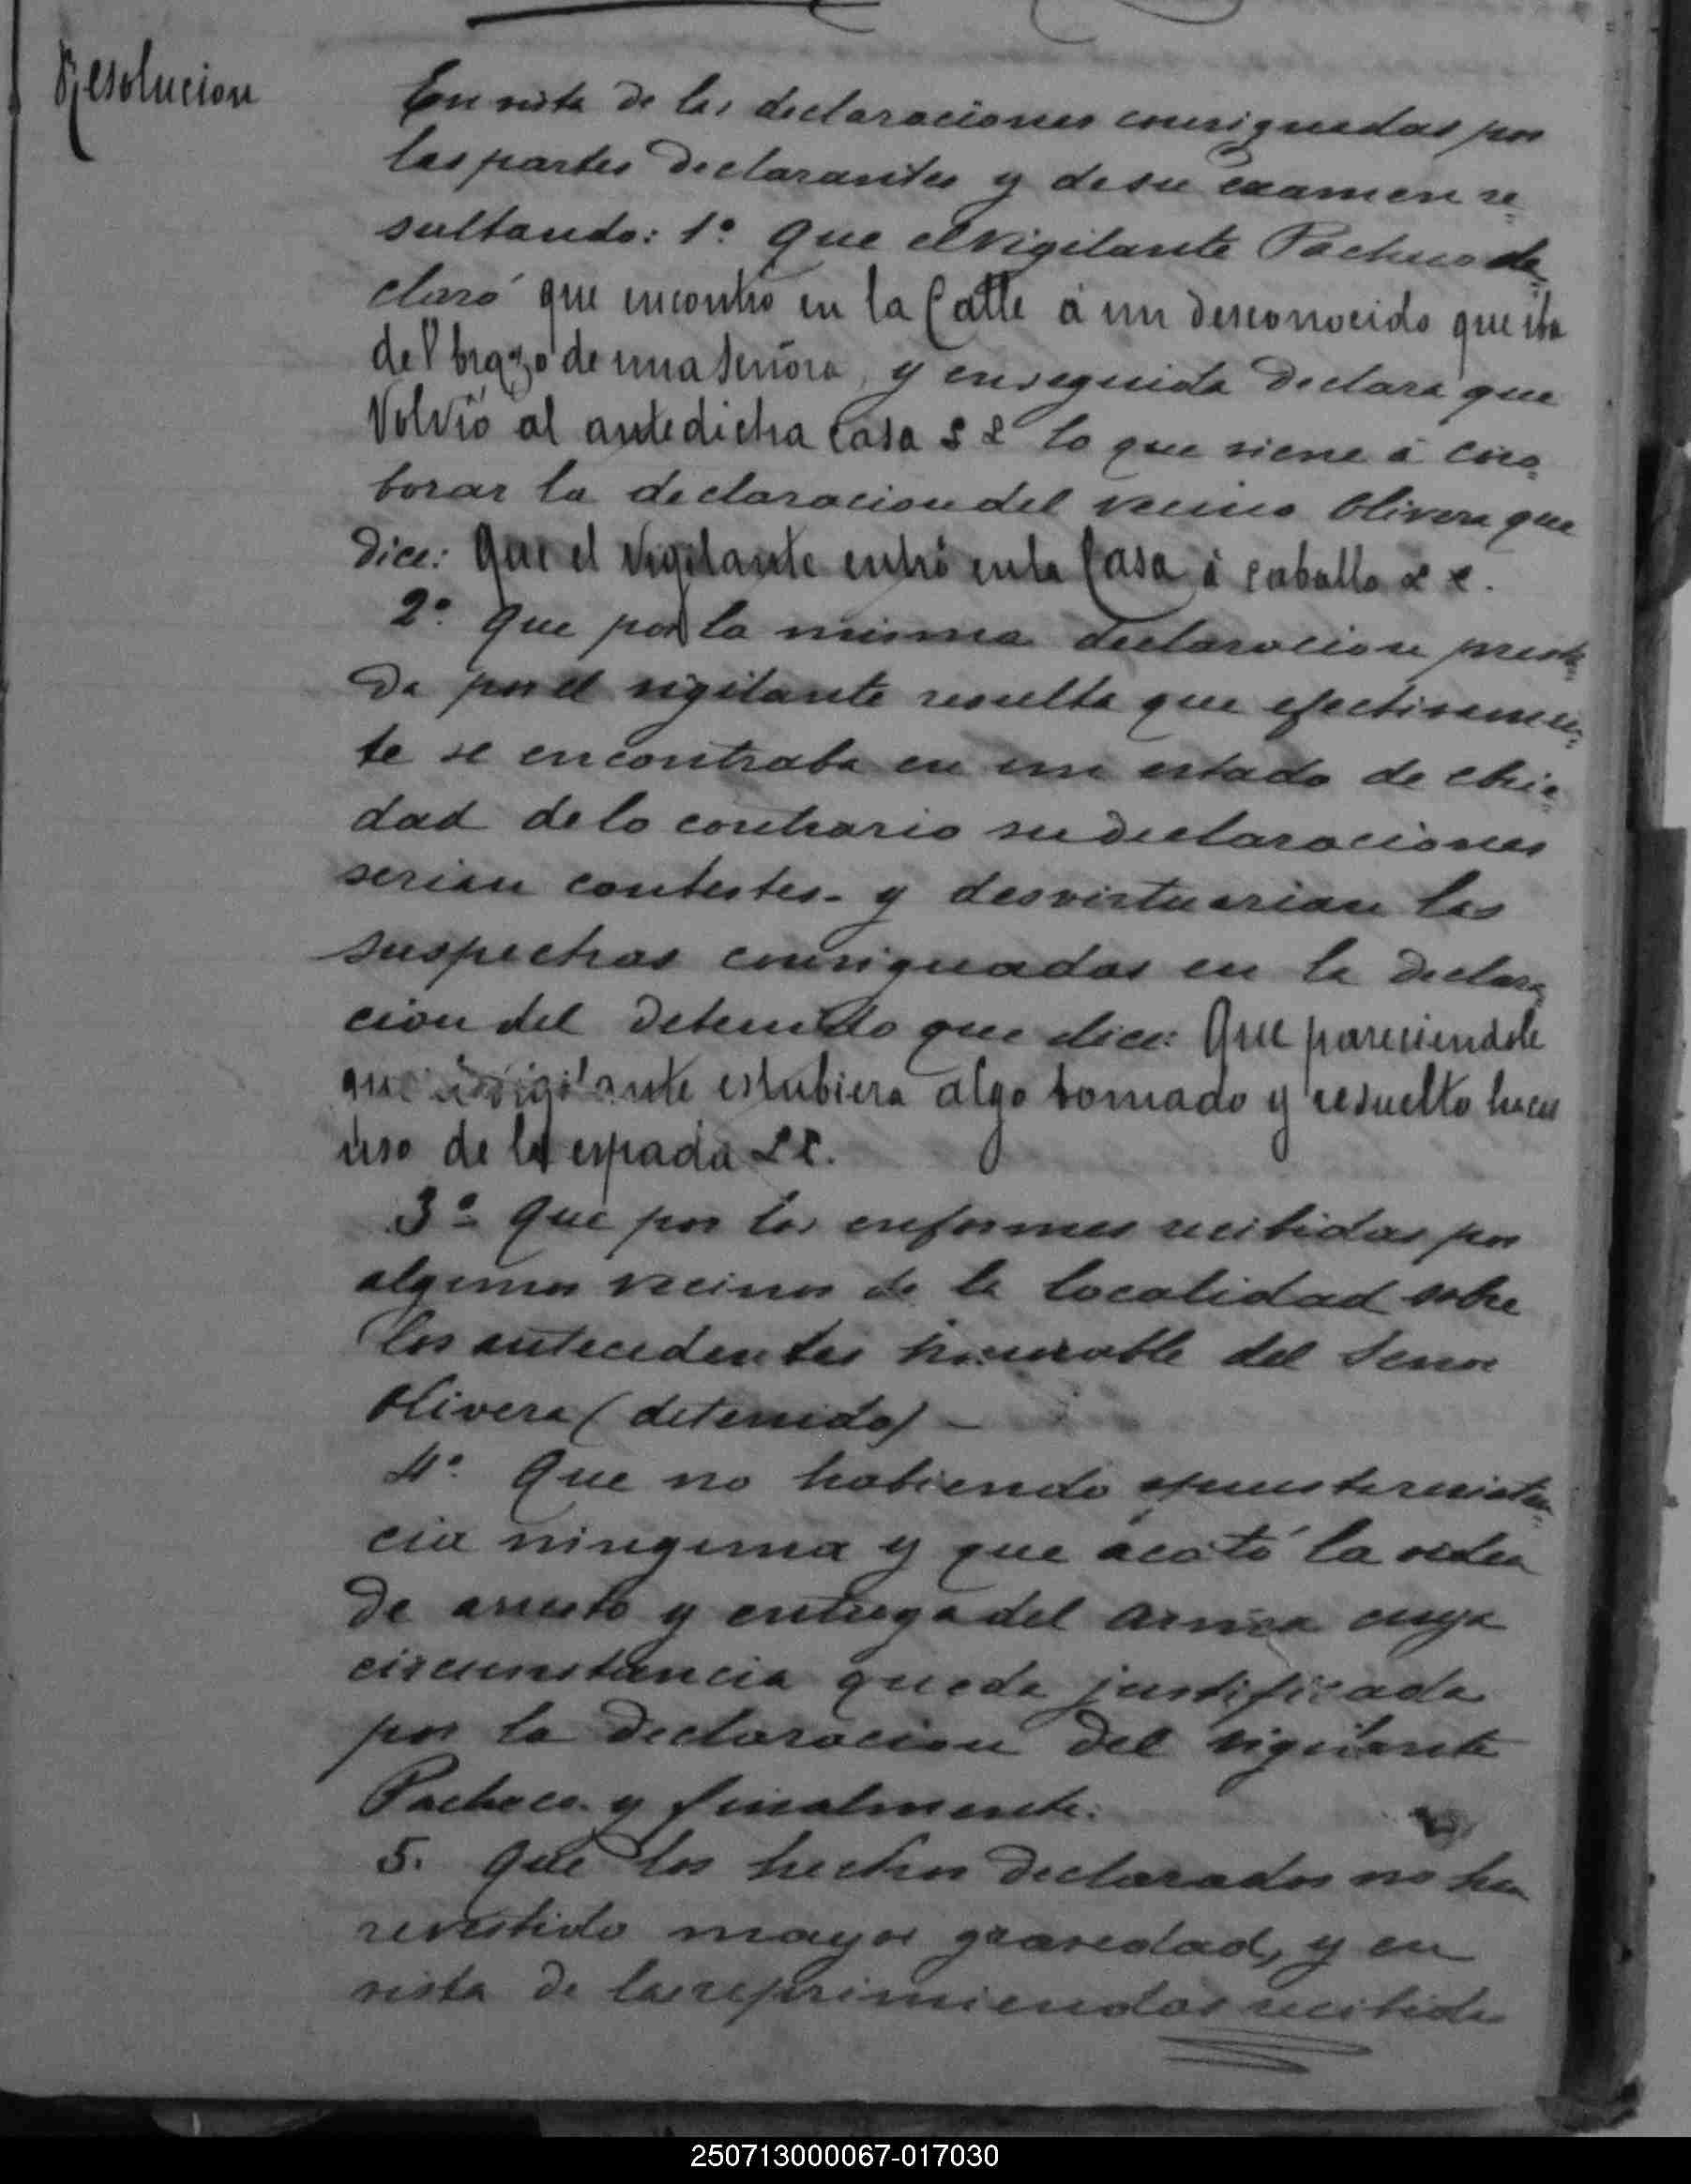 Resolucion
En vista de las declaraciones consignadas por
las partes declarantes y de su examen re=
sultando: 1º Que el vigilante Pacheco de=
claró que encontró en la Calle á un desconocido que iba
del brazo de una Señora, y enseguida declara que
Volvió al antedicha casa && lo que viene á coro=
borar la declaracion del vecino Olivera que
dice: Que el Vigilante entró en la Casa á caballo &&.
2º Que por la misma declaracion presta=
da por el vigilante resulta que efectivamen=
te se encontraba en un estado de ebrie=
dad de lo contrario su declaraciones
serian contestes- y desvirtuarian las
suspechas consignadas en la declara=
cion del detenido que dice: Que pareciendole
que el vigilante estubiera algo tomado y resuelto hacer
uso de la espada &&.
3º Que por los enformes recibidas por
algunos vecinos de la localidad sobre
los antecedentes honorable del Senor
Olivera (detenido) -
4º Que no habiendo opuesto resisten=
cia ninguna y que acató la orden
de arresto y entrega del arma cuya
circunstancia queda justificada
por la declaracion del vigilante
Pacheco. y finalmente:
5. Que los hechos declarados no ha
revestido mayor gravedad, y en
vista de las reprimiendas recibida
250713000067-017030